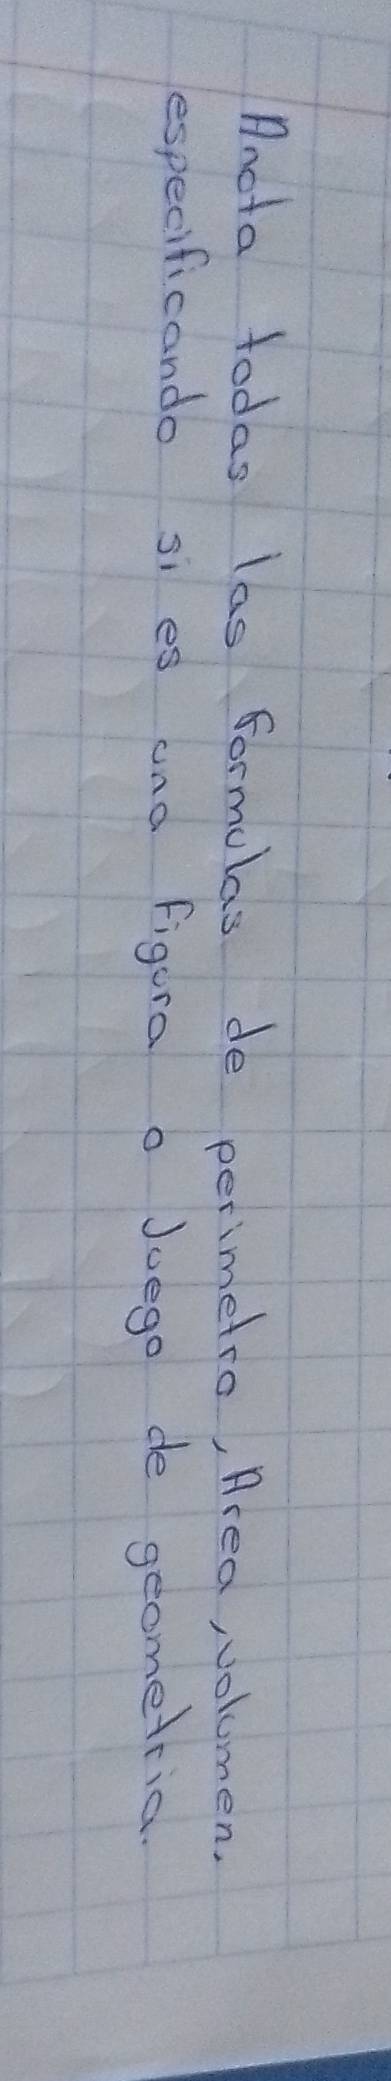 Anota todas las formulas de perimetro, Area, volumen,
especificando si es una figura o Juego de geometria.